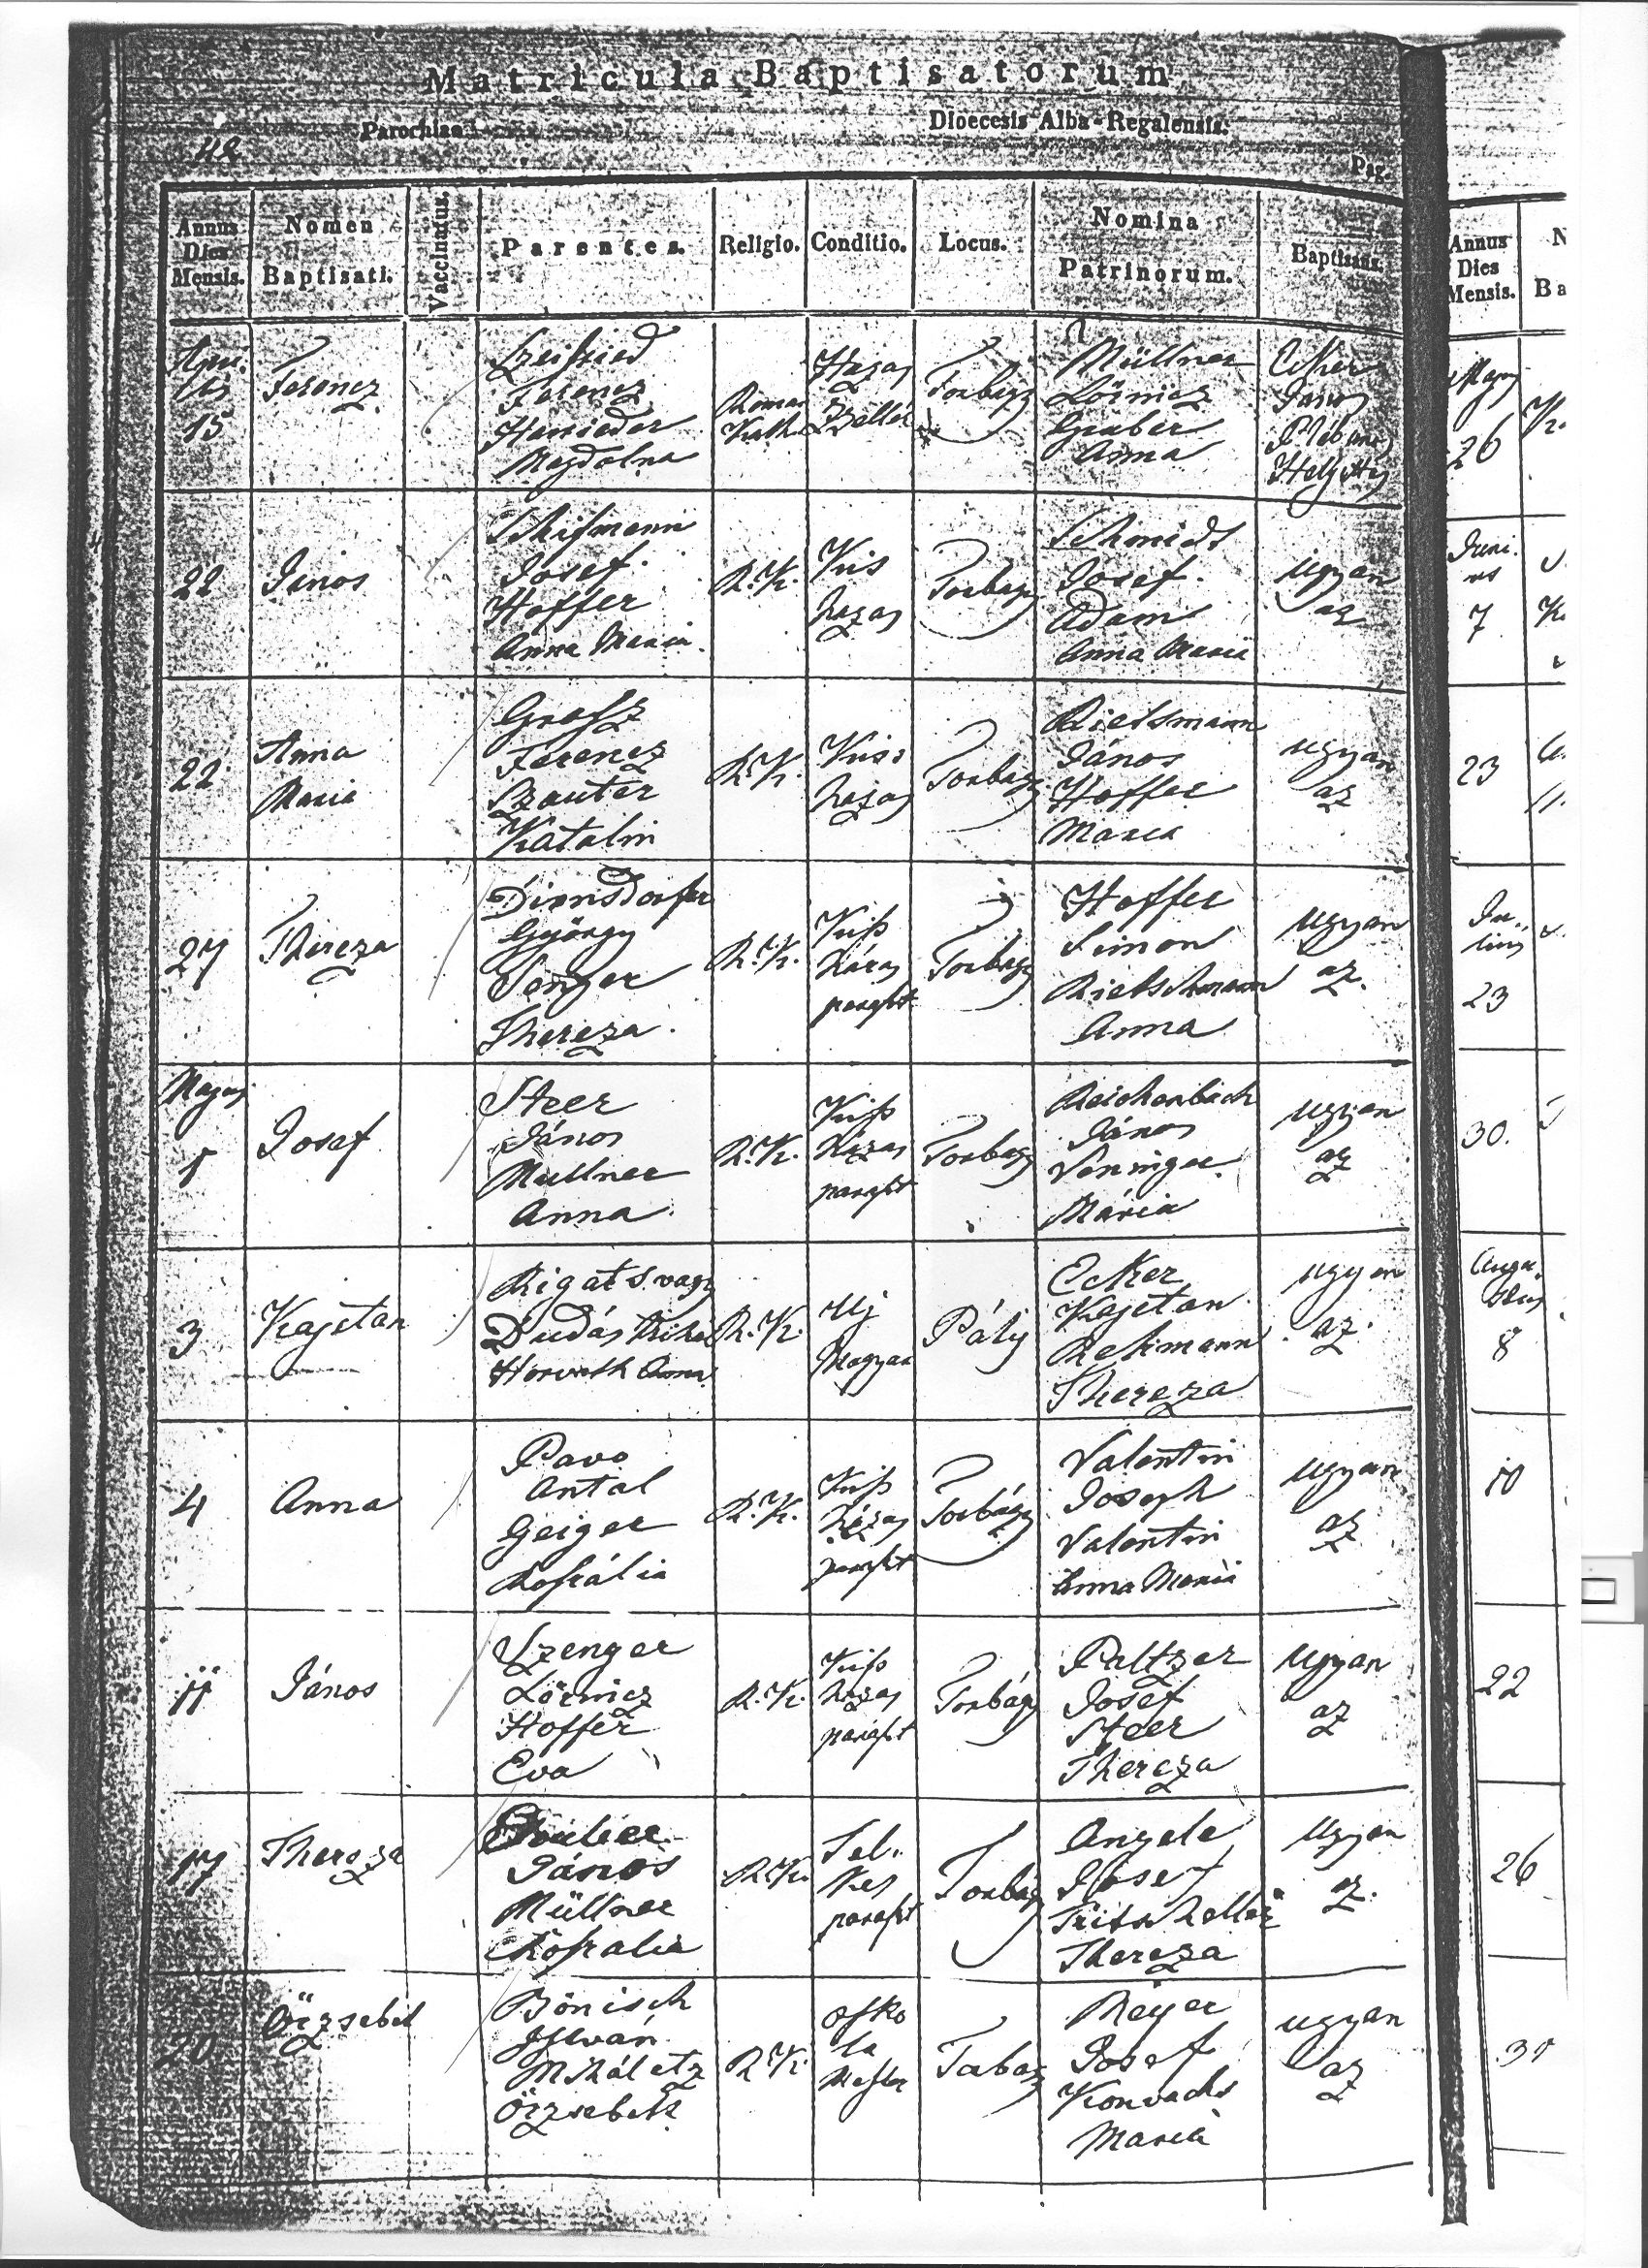 Matricula Baptisatorum
Parochiae
Dioecesis Alba-Regalensis.
Pag.
Annus Dies Mensis.
Nomen Baptisati.
Vaccinatus.
Parentes.
Religio.
Conditio.
Locus.
Nomina Patrinorum.
Baptisans.
15
Ferencz
Ferencz
Magdolna
Roman
Kath.
Házas
Zsellér
Torbágy
Müllner
Lörincz
Gruber
Anna
Ecker
János
Plébános
22
János
Josef
Hoffer
Anna Maria
R. K.
Kis
házas
Torbágy
Schmidt
Josef
Adam
Anna Maria
ugyan
az
22
Anna
Maria
Grosz
Ferencz
Szauter
Katalin
R. K.
Kiss
házas
Torbágy
Rietsmann
János
Hoffer
Maria
ugyan
az
27
Thereza
Dirnsdorfer
György
Senger
Thereza
R. K.
Kiß
házas
paraszt
Torbágy
Hoffer
Simon
Rietschmann
Anna
ugyan
az
Majus
1
Josef
Steer
János
Mullner
Anna
R. K.
Kiß
házas
paraszt
Torbágy
Reichenbach
János
Veninger
Mária
ugyan
az
3
Kajetan
Rigats vagy
Dudás Mihál
Horvath Anna
R. K.
Uj
Magyar
Páty
Ecker
Kajetan
Rekmann
Thereza
ugyan
az
4
Anna
Pavo
Antal
Geiger
Roszália
R. K.
Kiß
házas
paraszt
Torbágy
Valentin
Joseph
Valentin
Anna Maria
ugyan
az
11
János
Szenger
Lörincz
Hoffer
Eva
R. K.
Kiß
házas
paraszt
Torbágy
Peltzer
Josef
Steer
Thereza
ugyan
az
17
Thereza
János
Müllner
Roszalia
R. K.
Fel
kes
paraszt
Torbágy
Angele
Josef
Thereza
ugyan
az
20
Örzsebet
Bönisch
István
Miháletz
Örzsebeth
R. K.
osko
la
Mester
Torbágy
Meyer
Josef
Maria
ugyan
az
Annus Dies Mensis.
26
Juni
us
7
23
Ju
lius
23
30.
Augu
stus
8
10
22
26